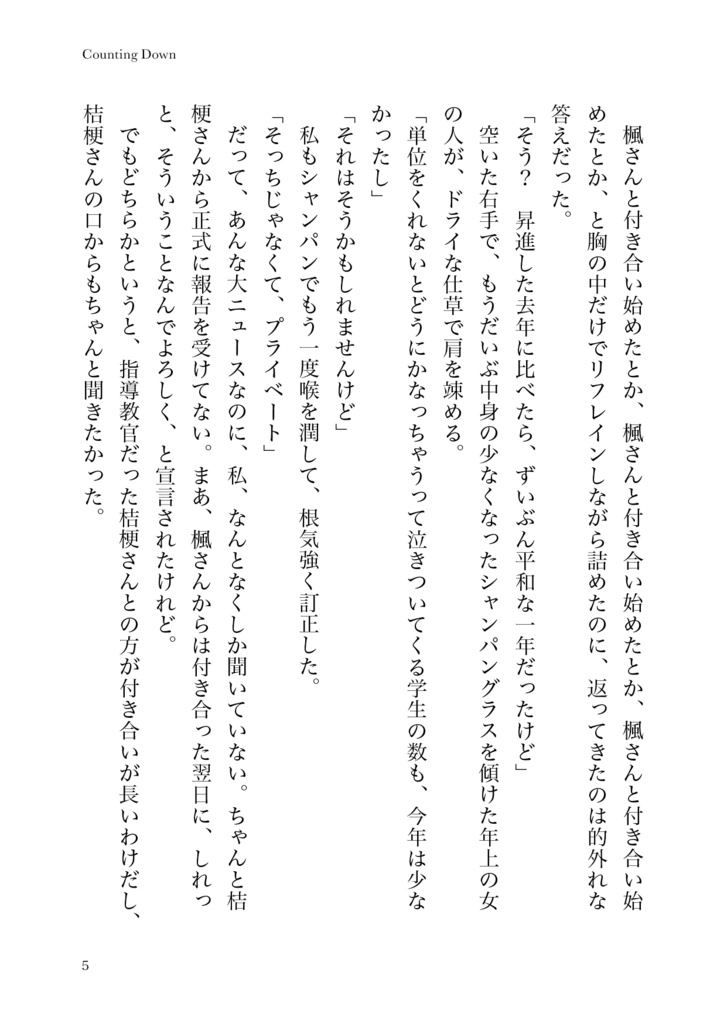 Counting Down
楓さんと付き合い始めたとか、楓さんと付き合い始めたとか、楓さんと付き合い始
めたとか、と胸の中だけでリフレインしながら詰めたのに、返ってきたのは的外れな
答えだった。
「そう？　昇進した去年に比べたら、ずいぶん平和な一年だったけど」
空いた右手で、もうだいぶ中身の少なくなったシャンパングラスを傾けた年上の女
の人が、ドライな仕草で肩を竦める。
「単位をくれないとどうにかなっちゃうって泣きついてくる学生の数も、今年は少な
かったし」
「それはそうかもしれませんけど」
私もシャンパンでもう一度喉を潤して、根気強く訂正した。
「そっちじゃなくて、プライベート」
だって、あんな大ニュースなのに、私、なんとなくしか聞いていない。ちゃんと桔
梗さんから正式に報告を受けてない。まあ、楓さんからは付き合った翌日に、しれっ
と、そういうことなんでよろしく、と宣言されたけれど。
でもどちらかというと、指導教官だった桔梗さんとの方が付き合いが長いわけだし、
桔梗さんの口からもちゃんと聞きたかった。
5